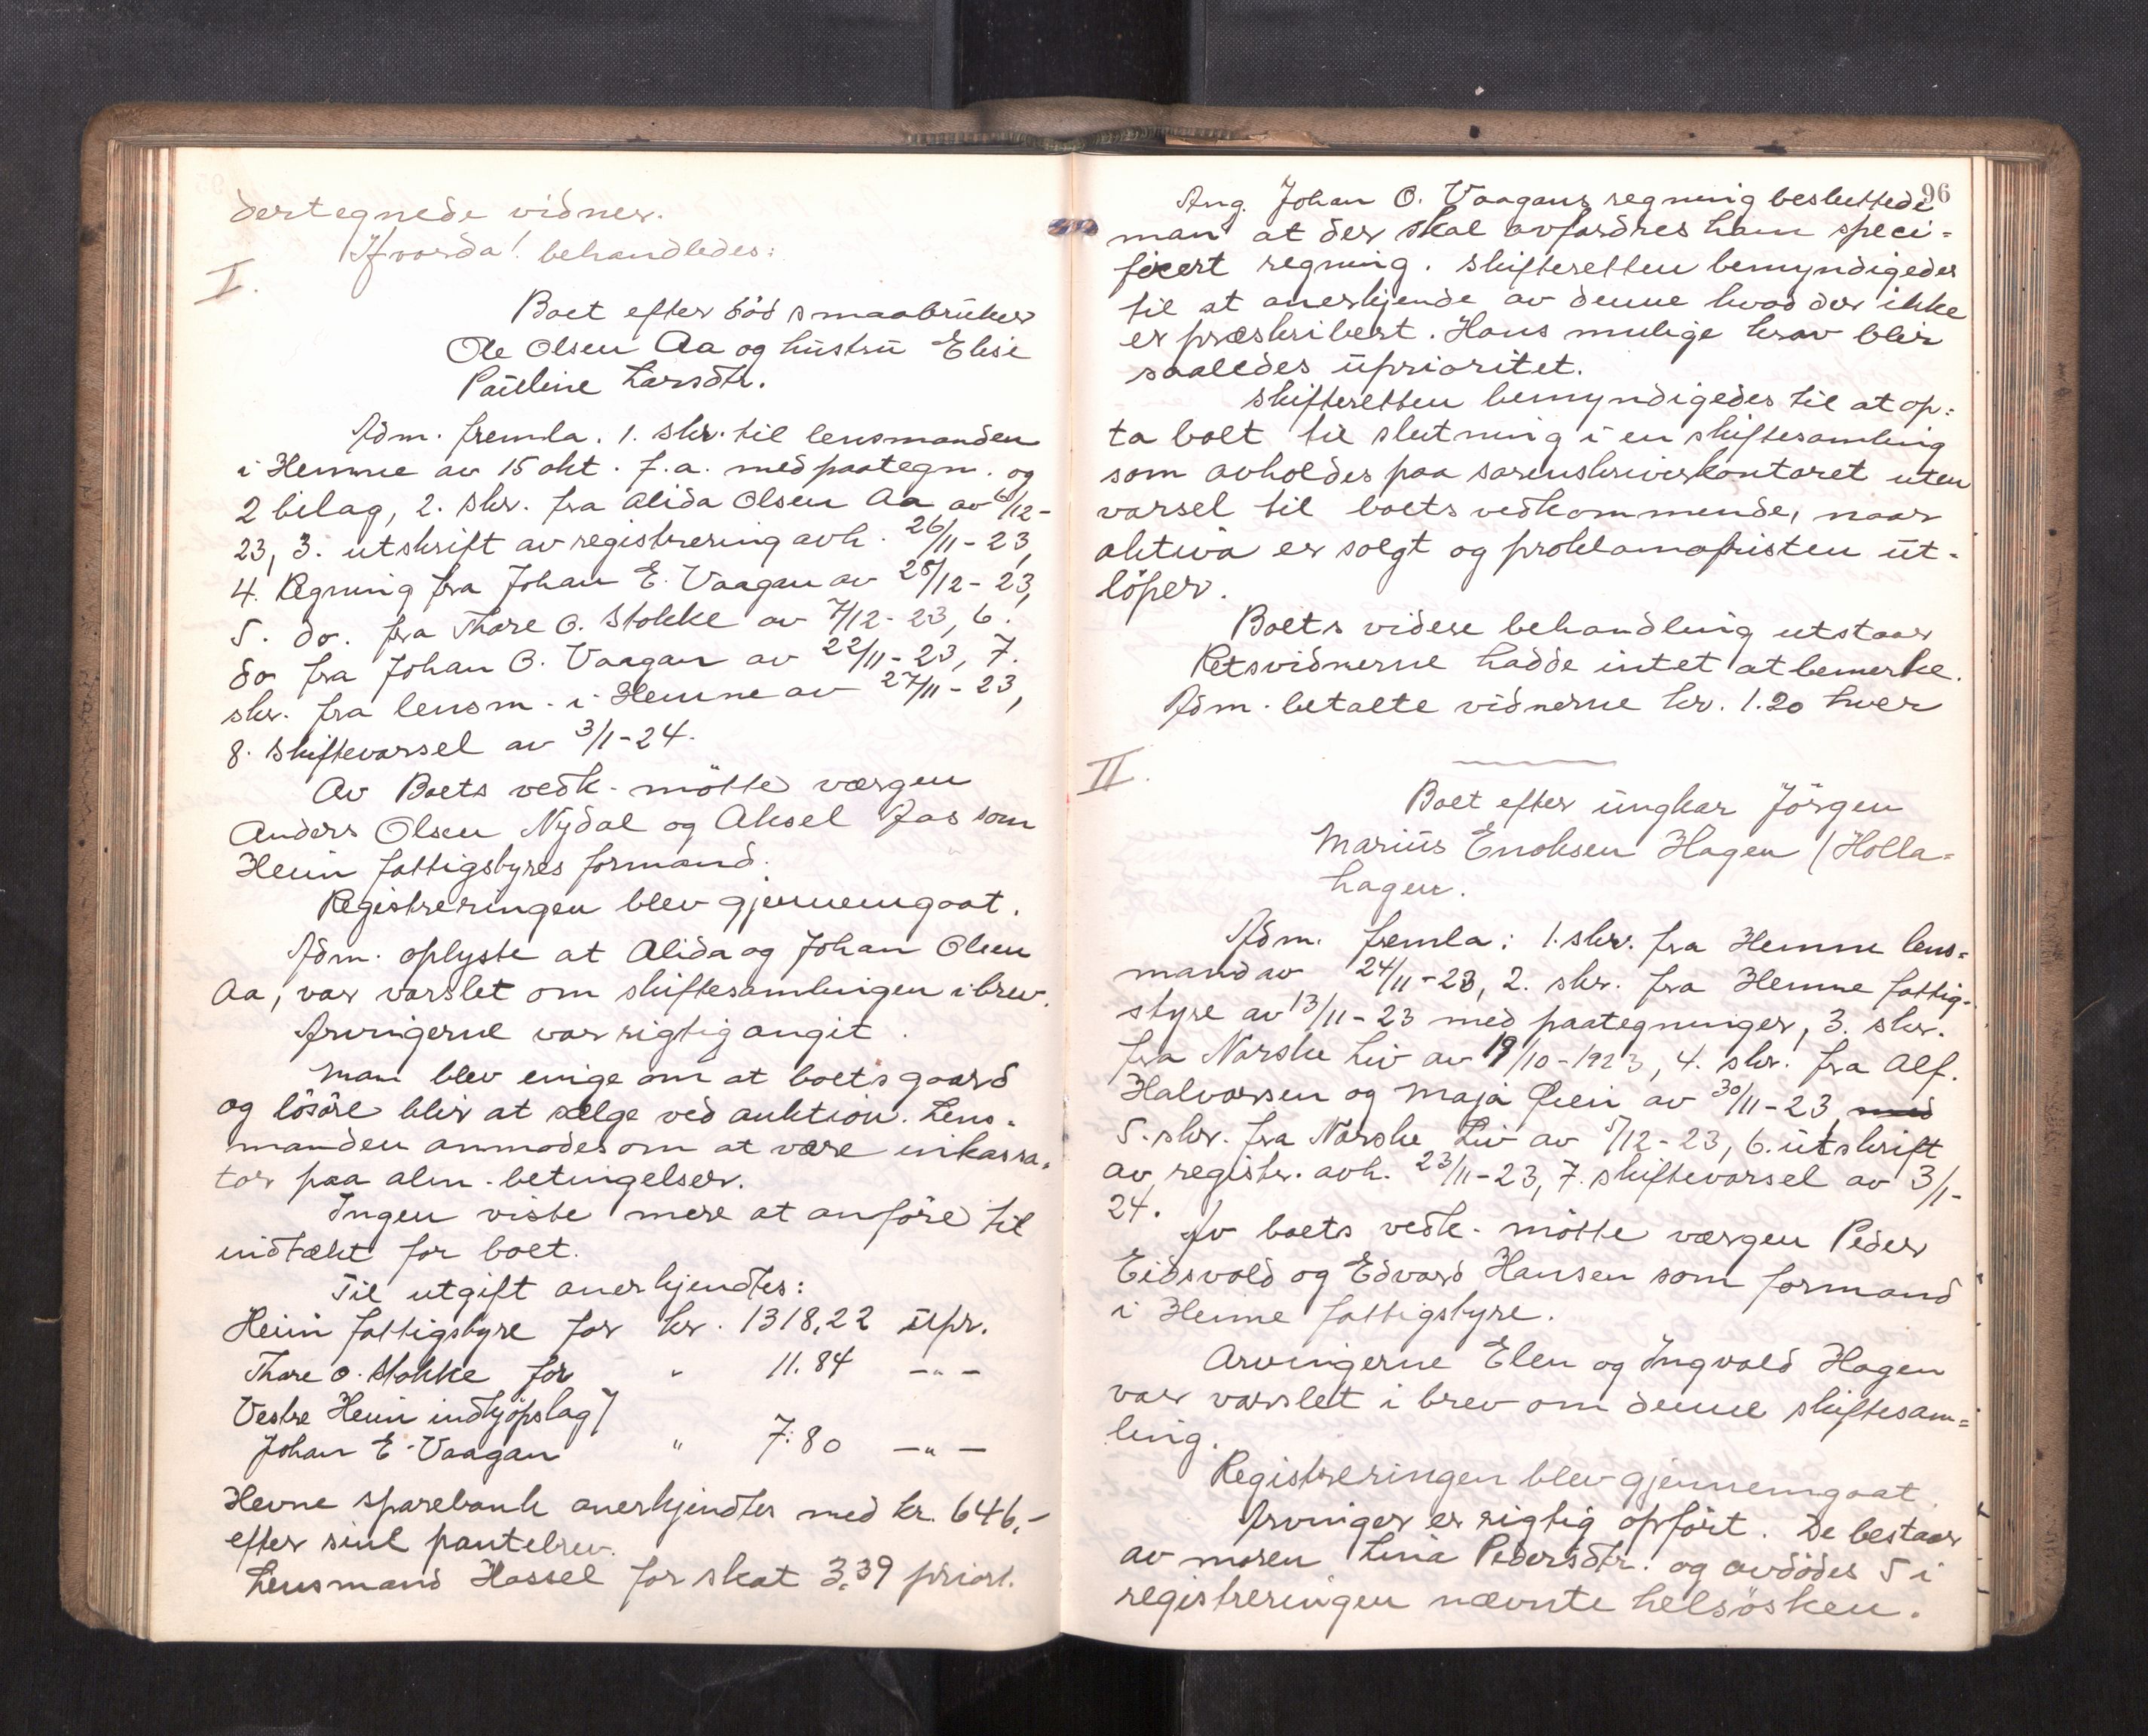 dertegnede vidner.
Hvorda! behandledes:
I.
Boet efter död smaabruker
Ole Olsen Aa og hustru Elise
Pauline Larsdtr.
Adm. fremla. 1. skr. til lensmanden
i Hemne av 15 okt. f.a. med paategn. og
2 bilag, 2. skr. fra Alida Olsen Aa av 6/12-
23, 3. utskrift av registrering avh. 26/11-23,
4. Regning fra Johan E. Vaagan av 28/12-23,
5. do. fra Thore O. Stokke av 7/12-23, 6.
do fra Johan O. Vaagan av 22/11-23, 7.
skr. fra lensm. i Hemne av 27/11-23,
8. Skiftevarsel av 3/1-24.
Av Boets vedk. mötte værgen
Anders Olsen Nydal og Aksel Aas som
Heim fattigstyres formand.
Registreringen blev gjennemgaat.
Adm. oplyste at Alida og Johan Olsen
Aa, var varslet om skiftesamlingen i brev.
Arvingerne var rigtig angit.
Man blev enige om at boets gaard
og lösöre blir at sælge ved auktion. Lens-
manden anmodes om at være inkassa-
tor paa alm. betingelser.
Ingen viste mere at anföre til
indtækt for boet.
Til utgift anerkjendtes:
Heim fattigstyre for kr. 1318,22 upr.
Thore O. Stokke for " 11.84 -"-
Vestre Heim indkjöpslag /
Johan E. Vaagan " 7.80 -"-
Hevne sparebank anerkjendtes med kr. 646,-
efter sine pantebrev.
Lensmand Hassel for skat 3.39 priort.
96
Ang. Johan O. Vaagans regning besluttede
man at der skal avfordres ham speci-
ficert regning. Skifteretten bemyndigedes
til at anerkjende av denne hvad der ikke
er præskribert. Hans mulige krav blir
saaledes uprioritet.
Skifteretten bemyndigedes til at op-
ta boet til slutning i en skiftesamling
som avholdes paa sorenskriverkontoret uten
varsel til boets vedkommende, naar
aktiva er solgt og proklamafristen ut-
löper.
Boets videre behandling utstaar
Retsvidnerne hadde intet at bemerke.
Adm. betalte vidnerne kr. 1.20 hver
II.
Boet efter ungkar Jörgen
Marius Enoksen Hagen (Holla-
hagen.
Adm. fremla: 1. skr. fra Hemne lens-
mand av 24/11-23, 2. skr. fra Hemne fattig-
styre av 13/11-23 med paategninger, 3. skr.
fra Norske Liv av 19/10-1923, 4. skr. fra Alf.
Halvorsen og Maja Øien av 30/11-23, med
5. skr. fra Norske Liv av 5/12-23, 6. utskrift
av registr. avh. 23/11-23, 7. skiftevarsel av 3/1-
24.
Av boets vedk. mötte værgen Peder
Eidsvold og Edvard Hansen som formand
i Hemne fattigstyre.
Arvingerne Elen og Ingvald Hagen
var varslet i brev om denne skiftesam-
ling.
Registreringen blev gjennemgaat.
Arvinger er rigtig opfört. De bestaar
av moren Lina Pedersdtr. og avdödes 5 i
registreringen nævnte helsösken.